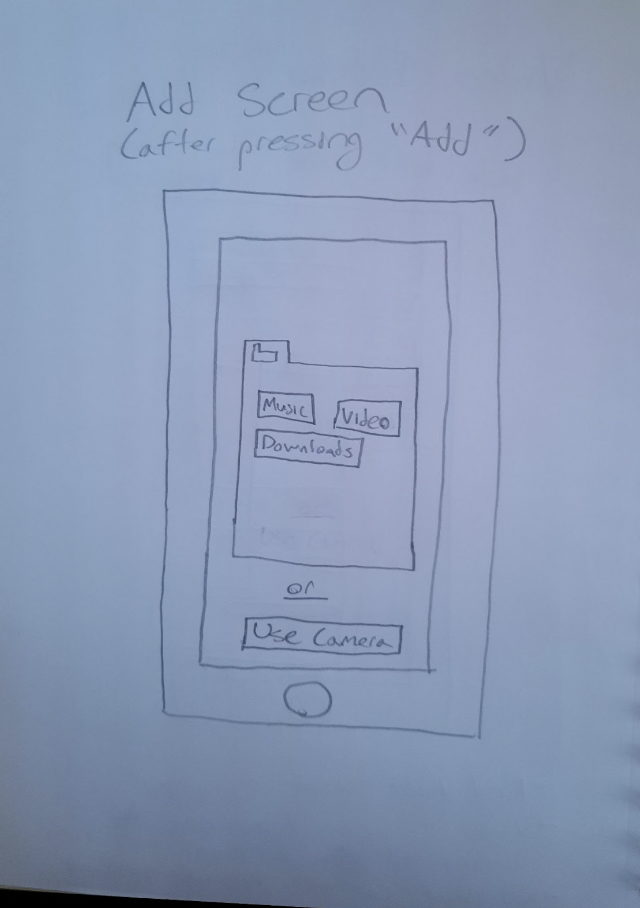 Add Screen
(after pressing "Add")
Music Video
Downloads
or
Use Camera